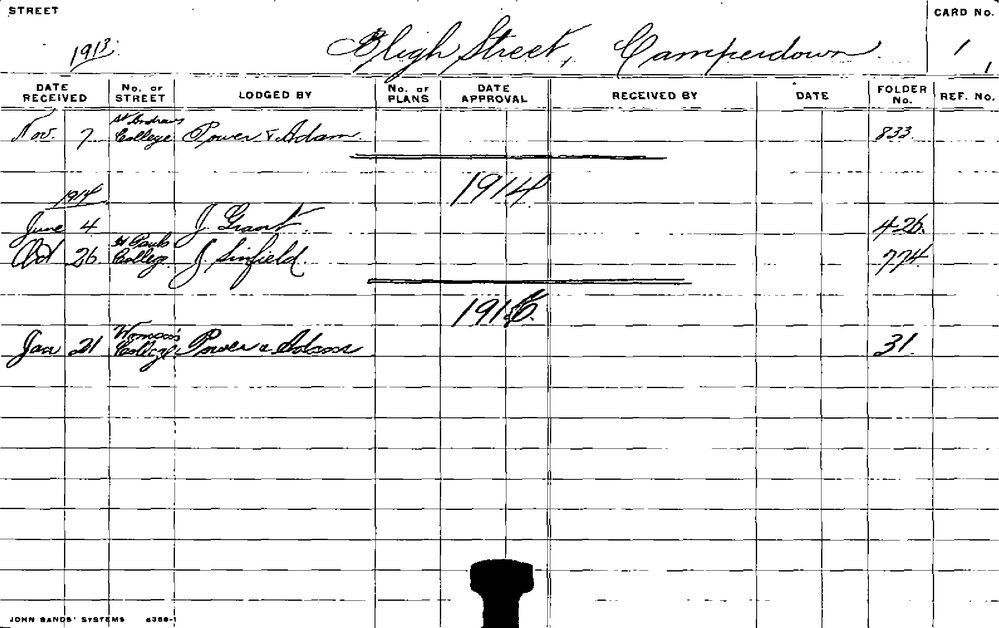 STREET
CARD No.
1913.
Bligh Street, Camperdown
1
1
DATE RECEIVED No. OF STREET LODGED BY No. OF PLANS DATE APPROVAL RECEIVED BY DATE FOLDER No. REF. No.
Nov. 7 St Andrews College Power & Adam 833
1914
1914
June 4 J. Grant 426
Oct 26 St Pauls College J. Sinfield 774
1916
Jan 21 Women's College Power & Adam 31
JOHN SANDS' SYSTEMS 6388-1